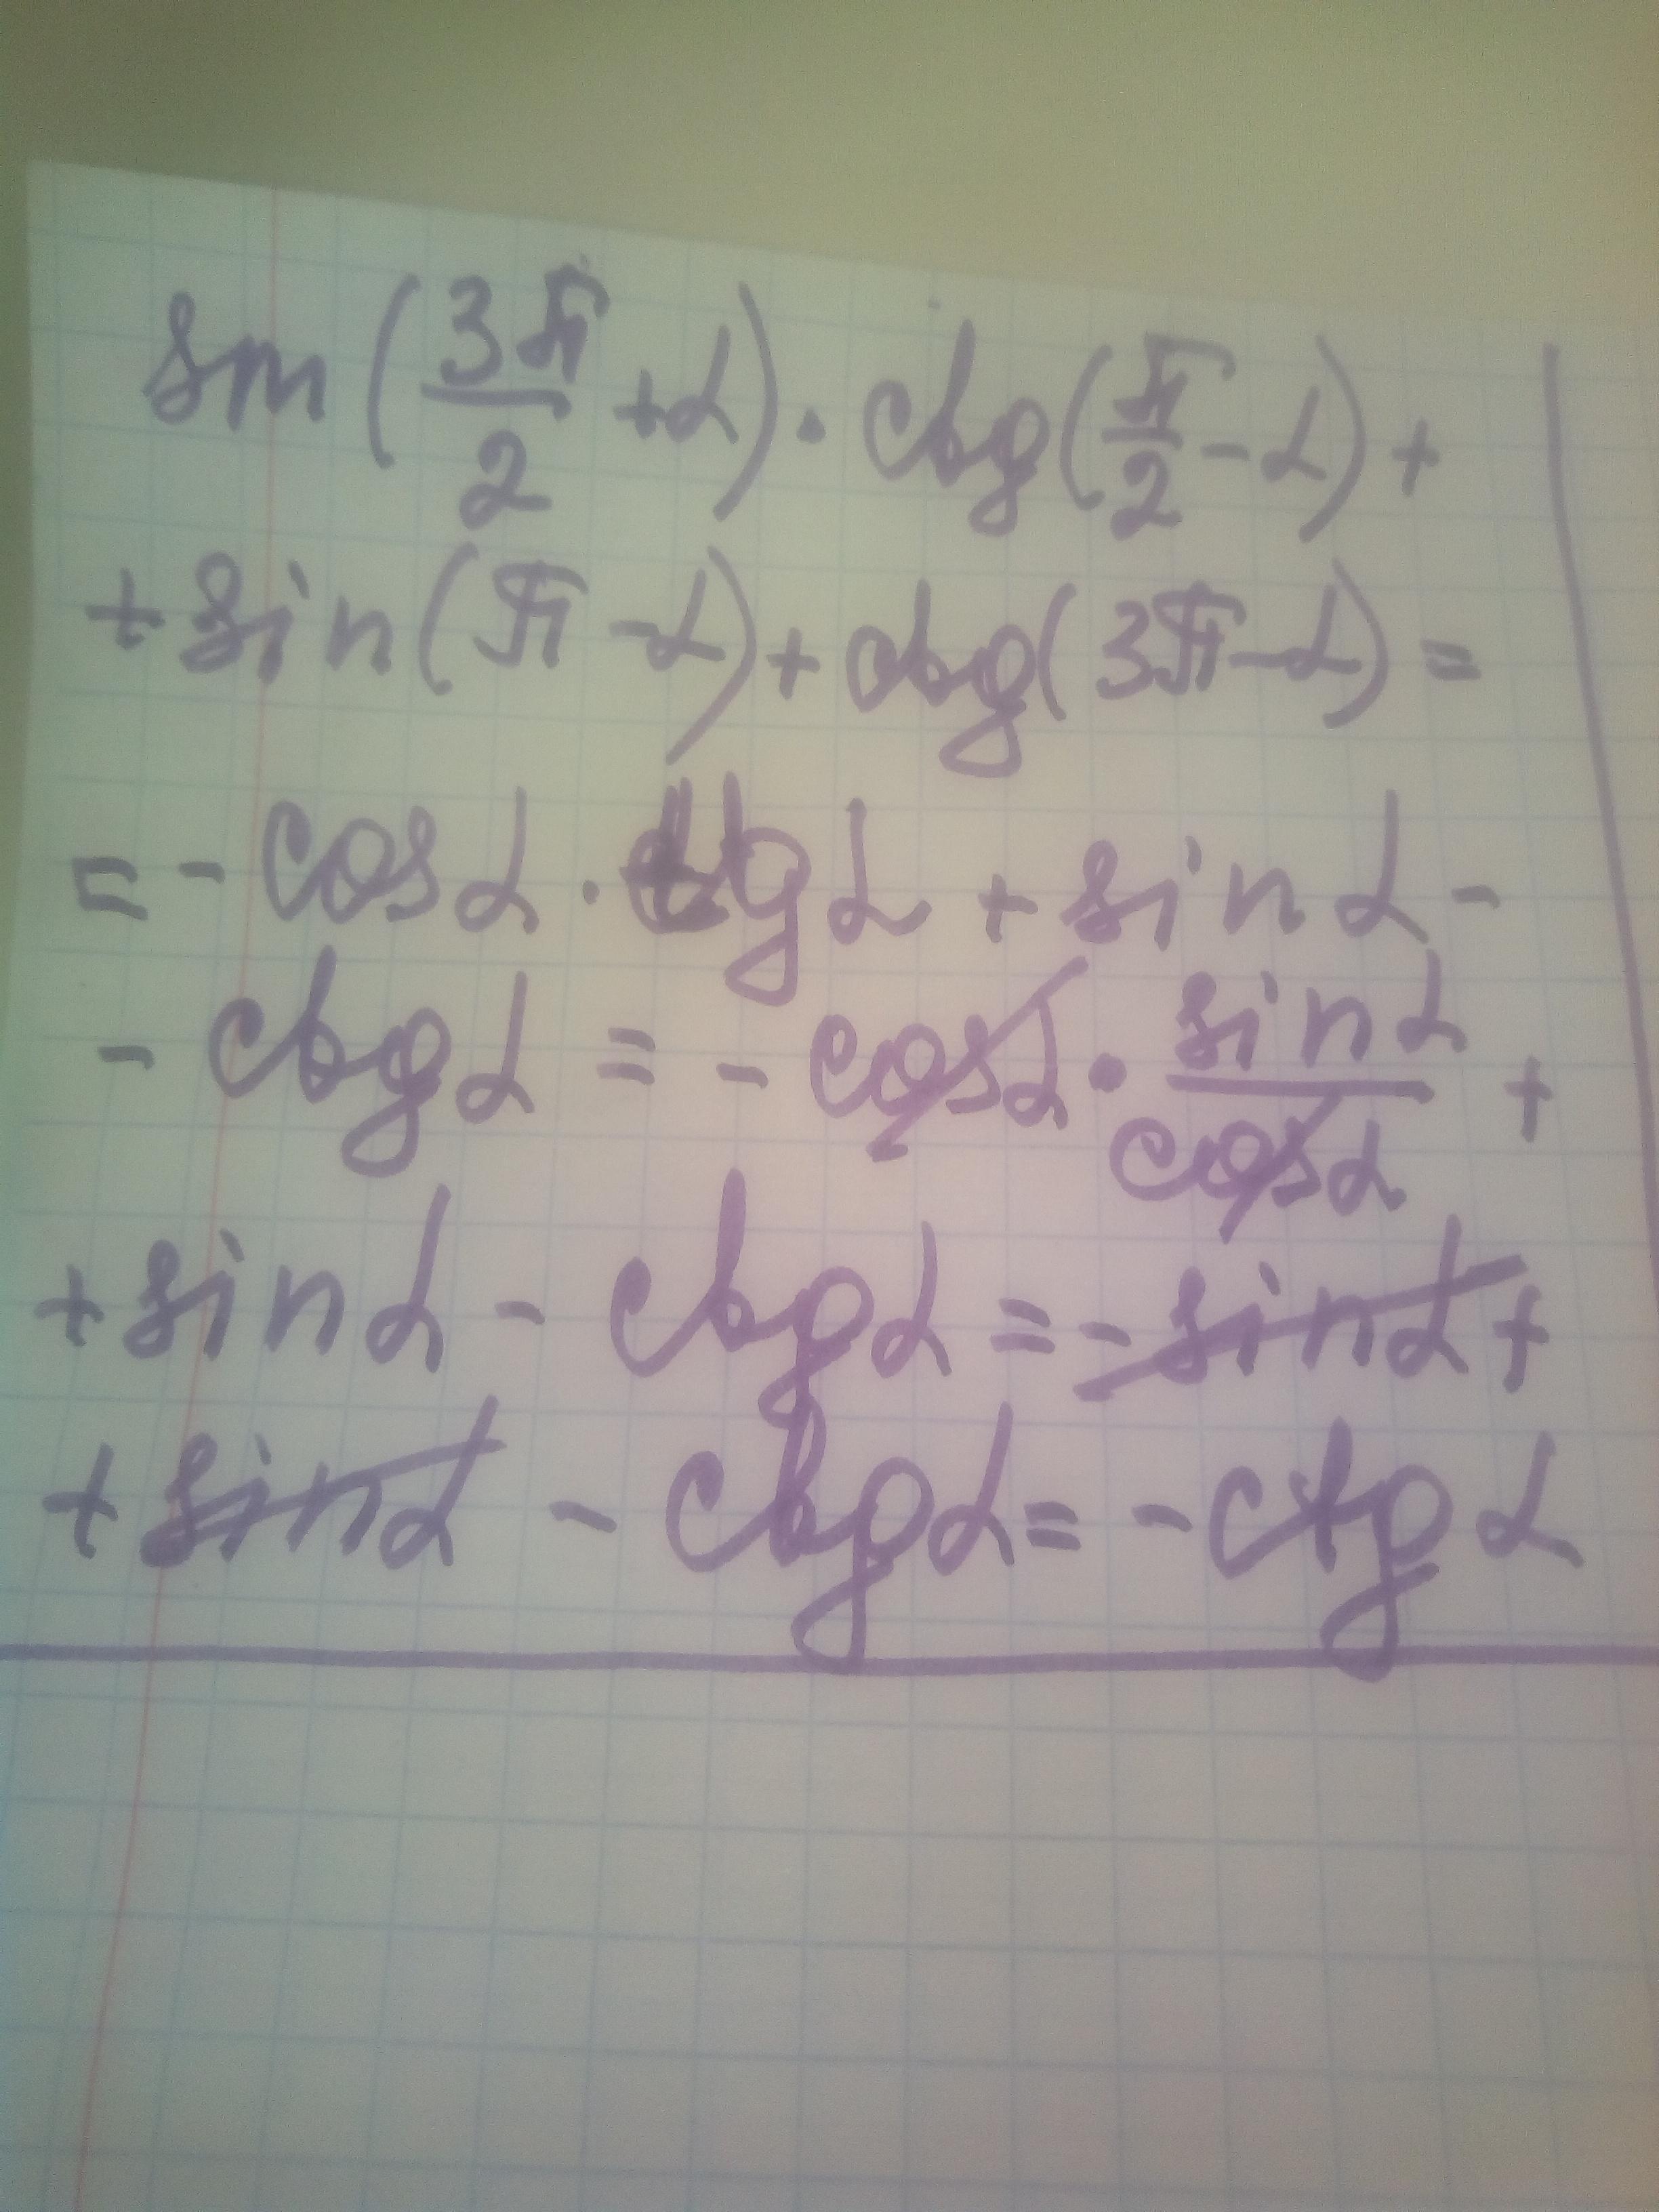 sin(3π/2 + α) · ctg(π/2 - α) +
+ sin(π - α) + ctg(3π - α) =
= - cos α · tg α + sin α -
- ctg α = - cos α · sin α/cos α +
+ sin α - ctg α = - sin α +
+ sin α - ctg α = - ctg α